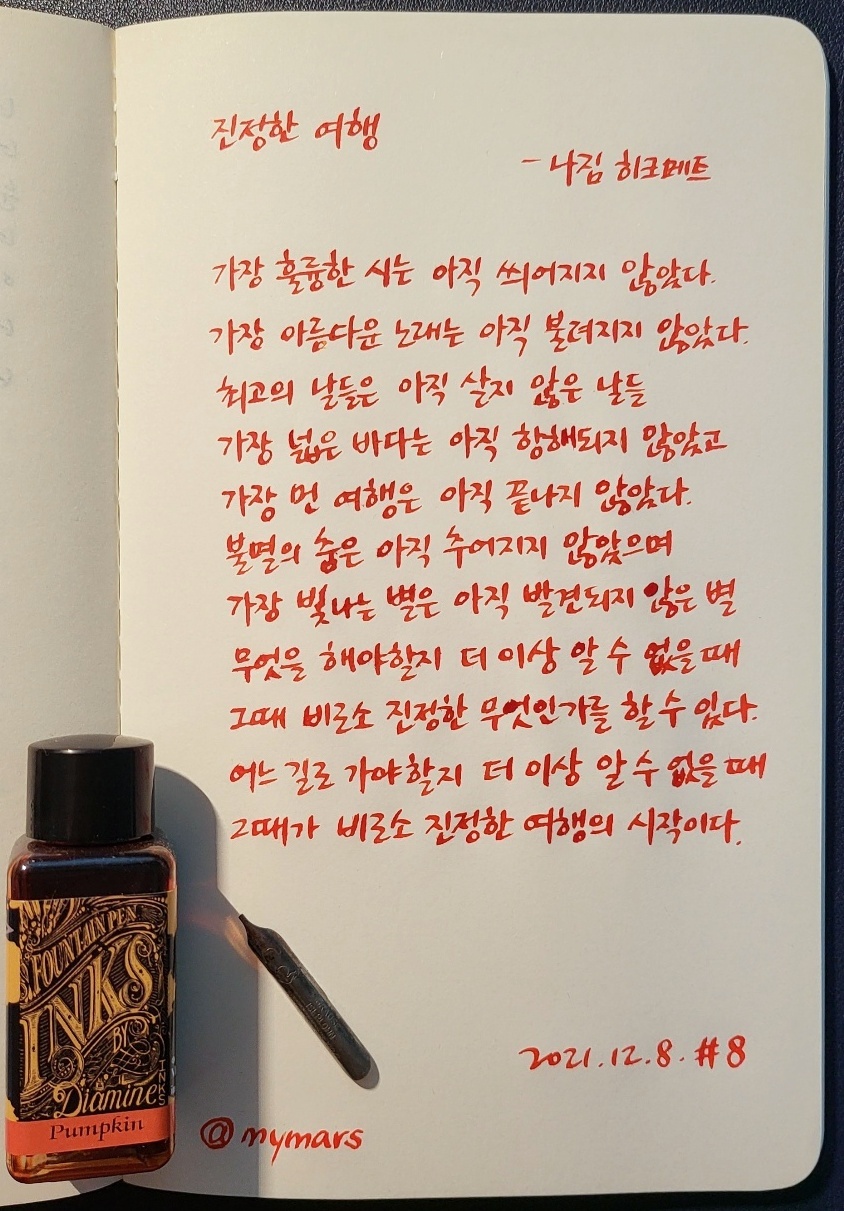 진정한 여행
- 나짐 히크메트
가장 훌륭한 시는 아직 씌어지지 않았다.
가장 아름다운 노래는 아직 불려지지 않았다.
최고의 날들은 아직 살지 않은 날들
가장 넓은 바다는 아직 항해되지 않았고
가장 먼 여행은 아직 끝나지 않았다.
불멸의 춤은 아직 추어지지 않았으며
가장 빛나는 별은 아직 발견되지 않은 별
무엇을 해야할지 더 이상 알 수 없을 때
그때 비로소 진정한 무엇인가를 할 수 있다.
어느 길로 가야할지 더 이상 알 수 없을 때
그때가 비로소 진정한 여행의 시작이다.
2021.12.8. #8
@mymars
FOUNTAIN PEN
INKS
BY
Diamine
Pumpkin
INKS